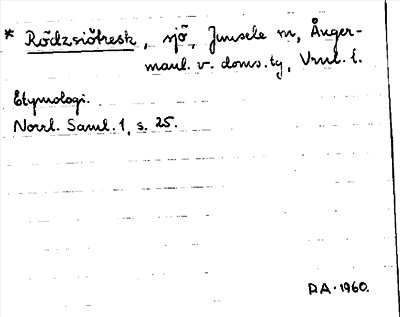 * Rödzsiötresk, sjö, Junsele sn, Ånger-
manl. v. doms.tg, Vnrl. l.
Etymologi.
Norrl. Saml. 1, s. 25.
DA. 1960.